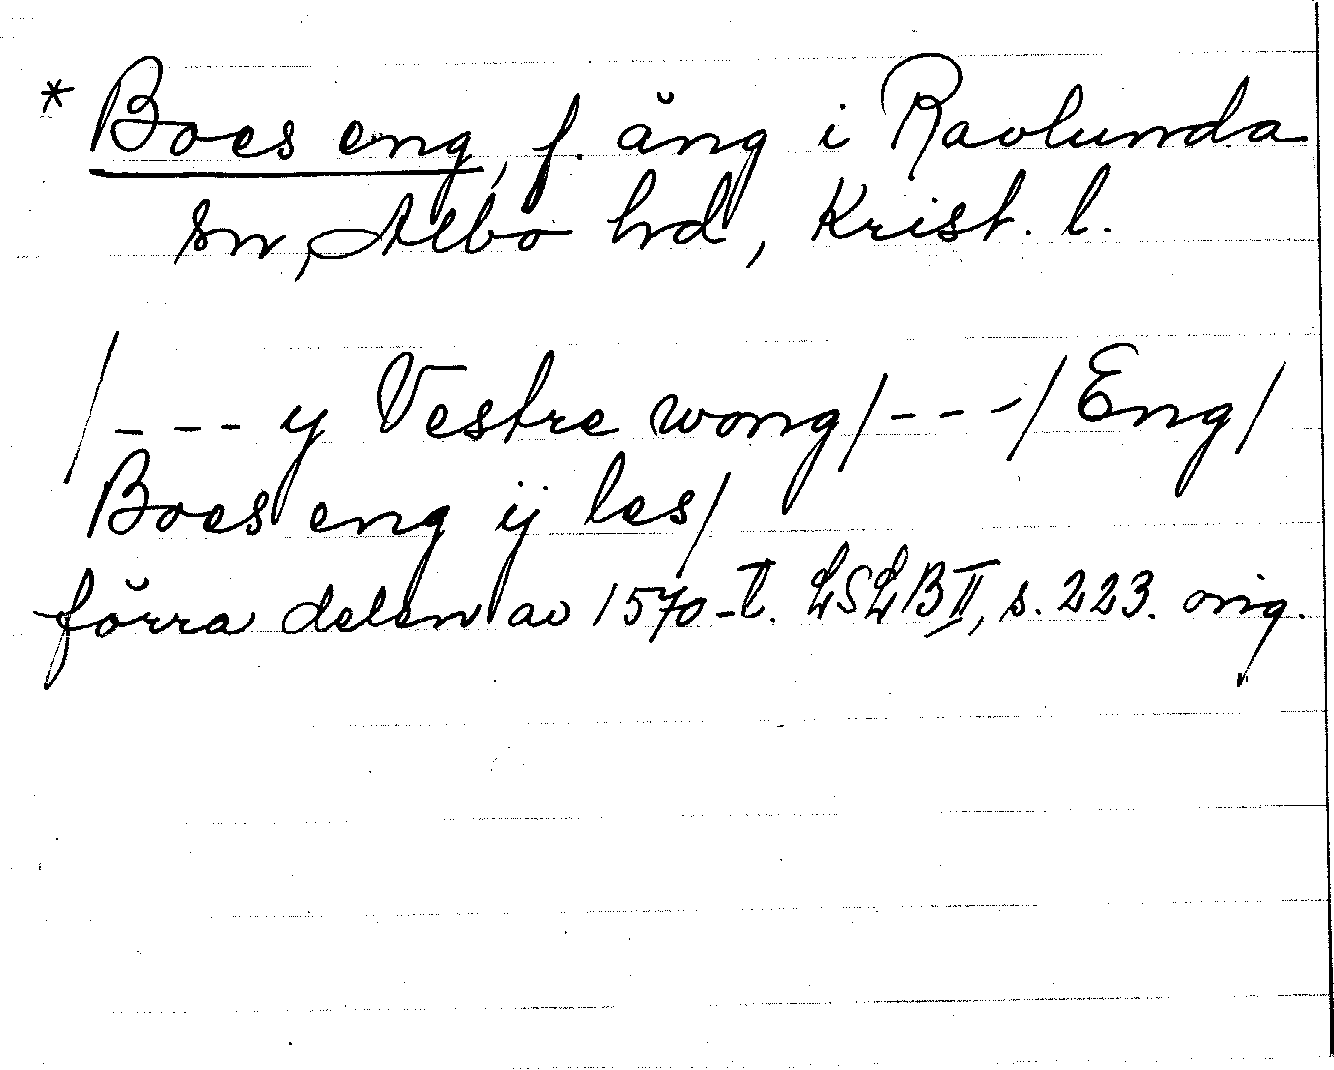 * Boes eng, f. äng i Ravlunda
sn, Albo hd, Krist. l.
/--- y Vestre wong/---/Eng/
Boes eng ij les/
förra delen av 1570-t. LSLB II, s. 223. orig.